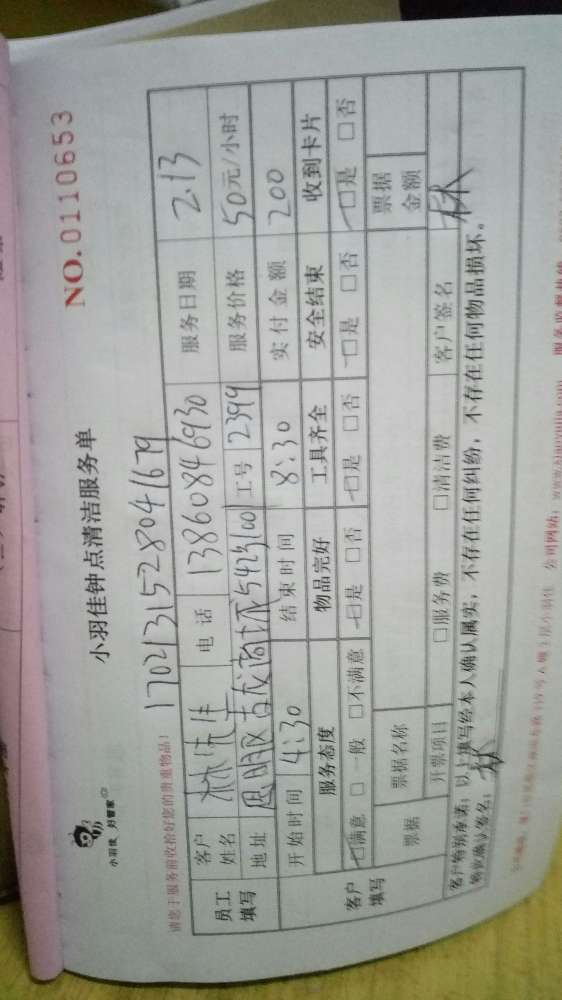 小羽佳 好管家
小羽佳钟点清洁服务单
NO.0110653
请您于服务前收拾好您的贵重物品!
1702131528041679
员工填写
客户姓名 林先生 电话 13860846930 服务日期 2.13
地址 思明区 工号 2399 服务价格 50元/小时
开始时间 4:30 结束时间 8:30 实付金额 200
客户填写
服务态度 物品完好 工具齐全 安全结束 收到卡片
□满意 □一般 □不满意 □是 □否 □是 □否 □是 □否 □是 □否
票据 票据名称 票据金额
开票项目 □服务费 □清洁费 客户签名 林
客户特别承诺:以上填写经本人确认属实,不存在任何纠纷,不存在任何物品损坏。
林
公司网站: